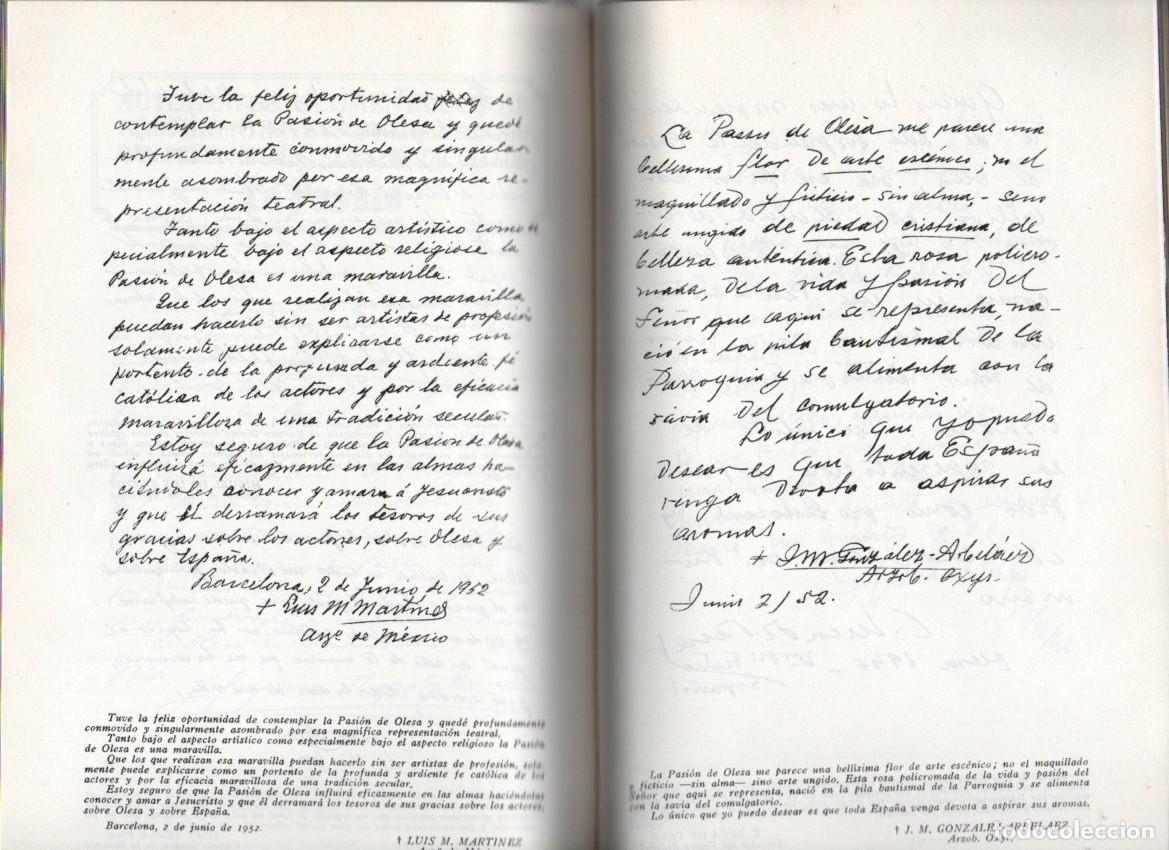 Tuve la feliz oportunidad de
contemplar la Pasión de Olesa y quedé
profundamente conmovido y singular-
mente asombrado por esa magnífica re-
presentación teatral.
Tanto bajo el aspecto artístico como es
pecialmente bajo el aspecto religioso la
Pasión de Olesa es una maravilla.
Que los que realizan esa maravilla
puedan hacerlo sin ser artistas de profesión
solamente puede explicarse como un
portento de la profunda y ardiente fé
católica de los actores y por la eficacia
maravillosa de una tradición secular.
Estoy seguro de que la Pasión de Olesa
influirá eficazmente en las almas ha-
ciéndoles conocer y amar á Jesucristo
y que El derramará los tesoros de sus
gracias sobre los actores, sobre Olesa y
sobre España.
Barcelona, 2 de Junio de 1952
+ Luis M. Martinez
Arz. de México
Tuve la feliz oportunidad de contemplar la Pasión de Olesa y quedé profundamente
conmovido y singularmente asombrado por esa magnífica representación teatral.
Tanto bajo el aspecto artístico como especialmente bajo el aspecto religioso la Pasión
de Olesa es una maravilla.
Que los que realizan esa maravilla puedan hacerlo sin ser artistas de profesión, sola-
mente puede explicarse como un portento de la profunda y ardiente fe católica de los
actores y por la eficacia maravillosa de una tradición secular.
Estoy seguro de que la Pasión de Olesa influirá eficazmente en las almas haciéndolas
conocer y amar a Jesucristo y que él derramará los tesoros de sus gracias sobre los actores,
sobre Olesa y sobre España.
Barcelona, 2 de junio de 1952.
† LUIS M. MARTINEZ
La Passió de Olesa me parece una
bellísima flor de arte escénico; no el
maquillado y ficticio - sin alma, - sino
arte ungido de piedad cristiana, de
belleza auténtica. Esta rosa policro-
mada, de la vida y pasión del
Señor que aqui se representa, na-
ció en la pila bautismal de la
Parroquia y se alimenta con la
savia del comulgatorio.
Lo único que yo puedo
desear es que toda España
venga devota a aspirar sus
aromas.
+ J. M. González-Arbeláez
Arzob. Oxyr.
Junio 2/52.
La Pasión de Olesa me parece una bellísima flor de arte escénico; no el maquillado
y ficticio —sin alma— sino arte ungido. Esta rosa policromada de la vida y pasión del
Señor que aquí se representa, nació en la pila bautismal de la Parroquia y se alimenta
con la savia del comulgatorio.
Lo único que yo puedo desear es que toda España venga devota a aspirar sus aromas.
† J. M. GONZALEZ ARBELAEZ
Arzob. Oxyr.
todocoleccion